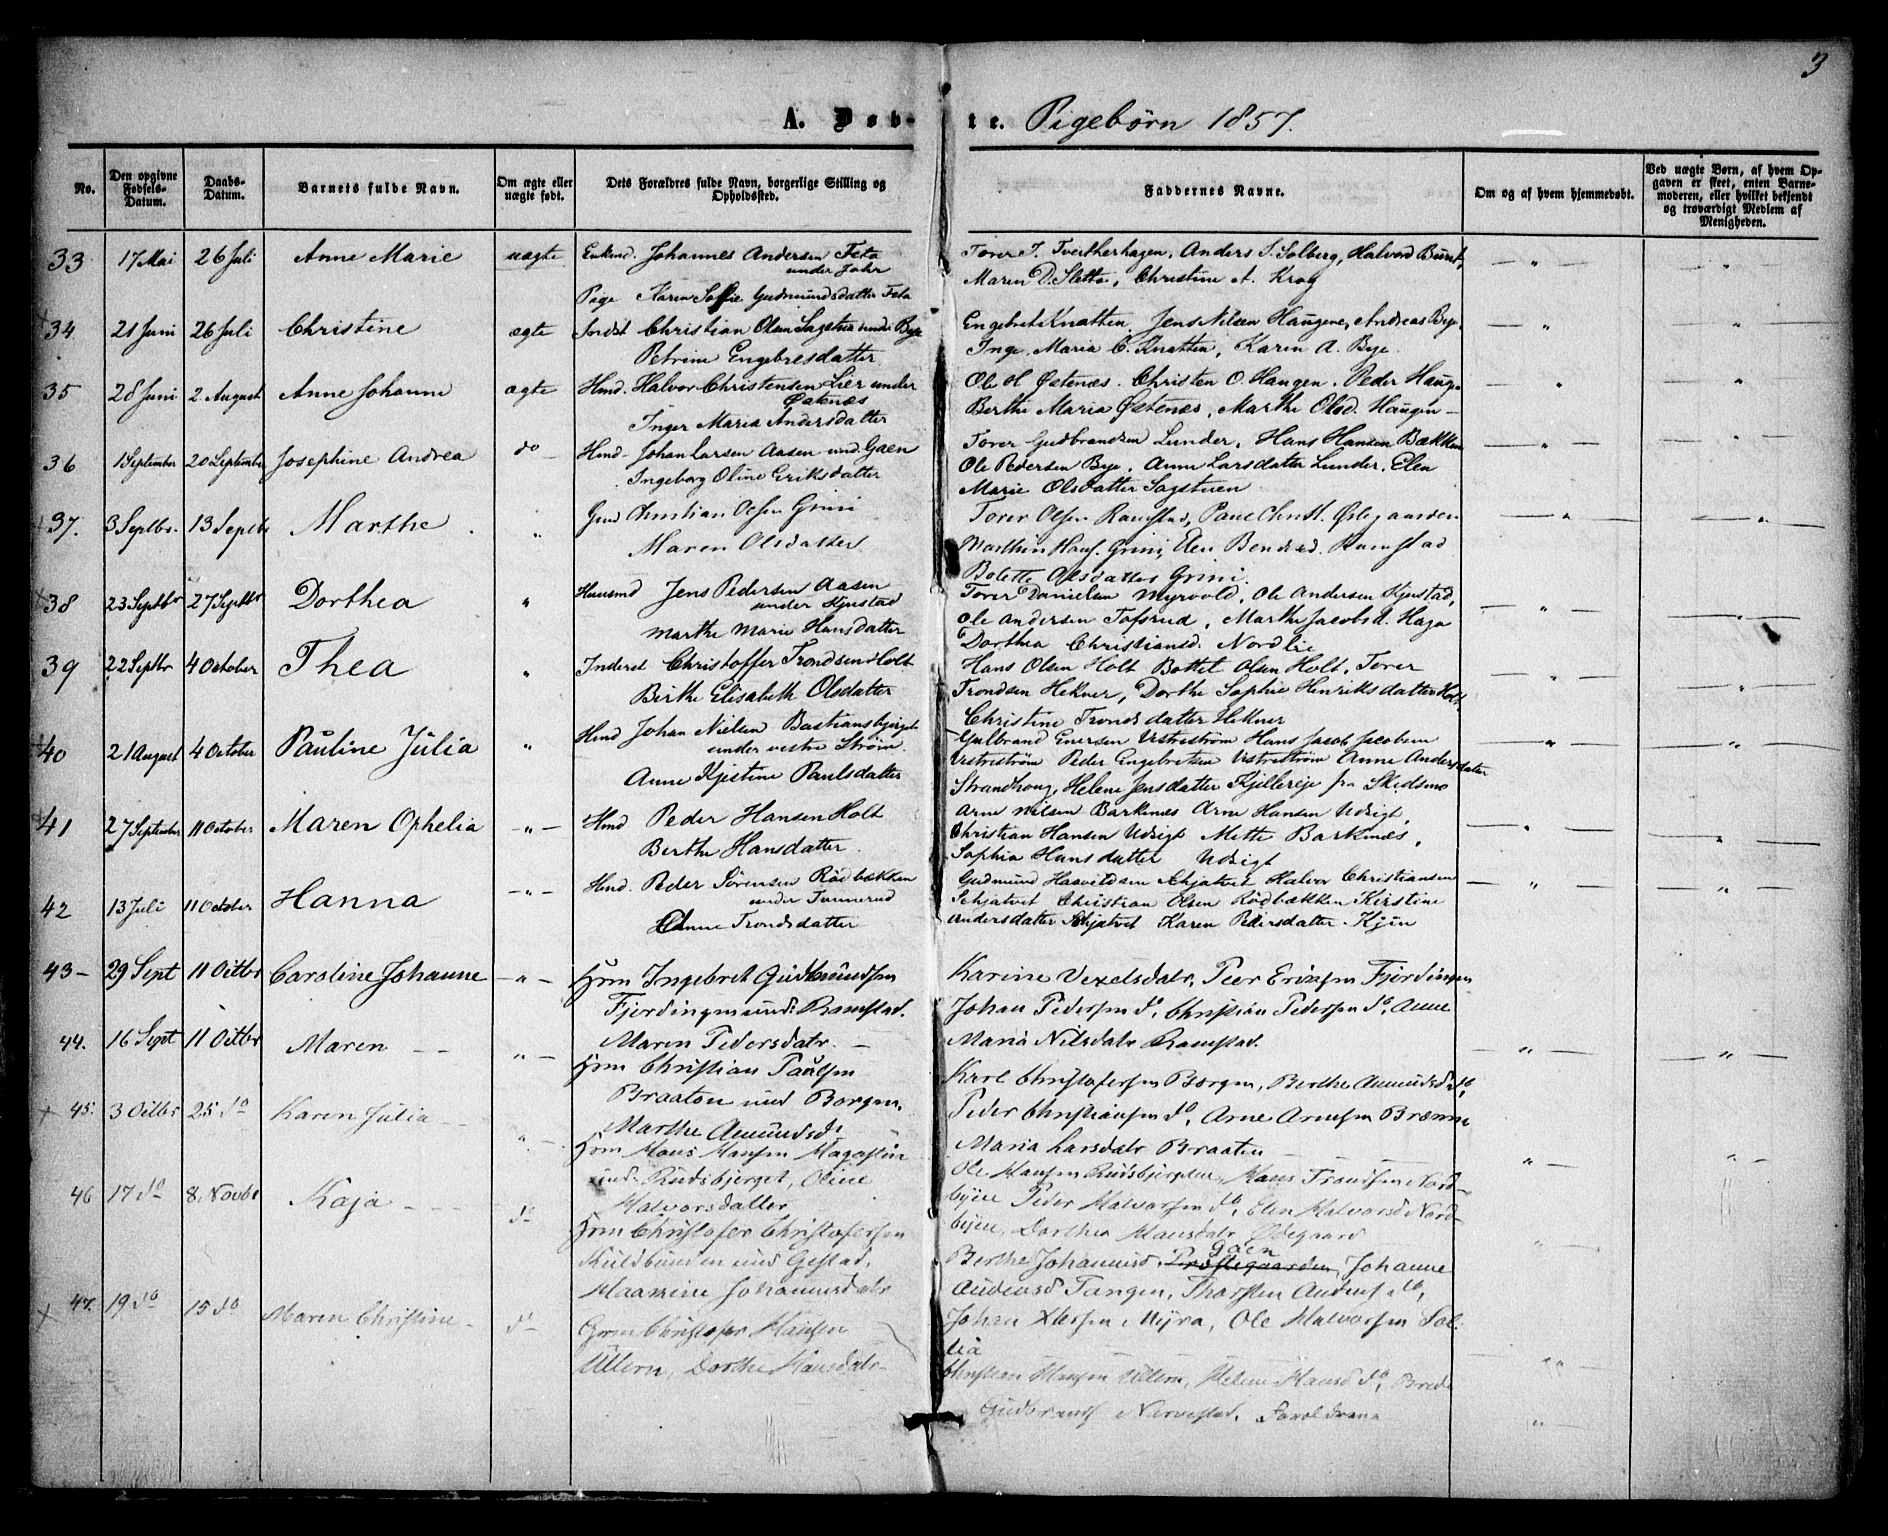 3
A. Døbte. Pigebørn 1857.
No.
Den opgivne Fødsels-Datum.
Daabs-Datum.
Barnets fulde Navn.
Om ægte eller uægte født.
Dets Forældres fulde Navn, borgerlige Stilling og Opholdssted.
Faddernes Navne.
Om og af hvem hjemmedøbt.
Ved uægte Børn, af hvem Opgaven er skeet, enten Barnemoderen, eller hvilket bekjendt og troværdigt Medlem af Menigheden.
33 17 Mai 26 Juli Anne Marie uægte Enkmd. Johannes Andersen Feta
under Johr
Pige Karen Soffie Gudmundsdatter Feta
Torer J. Tveitherhagen, Anders S. Solberg, Halvord
Maren D. Sletta, Christine A. Krog
34 21 Juni 26 Juli Christine ægte Indst Christian Olsen Sagstua under Bye
Petrine Engebresdatter
Engebret Knatten, Jens Nilsen Haugene, Andreas Bye,
Inge Maria C. Knatten, Karen A. Bye.
35 28 Juni 2 August Anne Johanne ægte Hmd. Halvor Christensen Lier under
Østenæs
Inger Maria Andersdatter
Ole H Østenæs. Christen O. Haugen. Peder Hauge
Berthe Maria Østenæs, Marthe Olsd. Haugen
36 1 September 20 September Josephine Andrea do Hmd. Johan Larsen Aasen und. Gaen
Ingeborg Oline Eriksdatter
Torer Gudbrandsen Lunder, Hans Hansen Bækken
Ole Pedersen Bye. Anne Larsdatter Lunder. Elen
Marie Olsdatter Sagstuen
37. 3 Septbr. 13 Septbr Marthe " Gmd Christian Olsen Grini
Maren Olsdatter
Torer Olsen Ramstad, Paul Christ. Østegaarden
Marthin Hans. Grini, Elen Bendsd. Ramstad
Bolette Olsdatter Grini.
38 23 Septbr 27 Septbr Dorthea " Huusmd Jens Pedersen Aasen
under Kjnstad
Marthe Marie Hansdatter
Torer Danielsen Myrvold, Ole Andersen Kjnstad,
Ole Andersen Tofsrud, Marthe Jacobsd. Haga
Dorthea Christiansd. Nordlie
39 22 Septbr 4 October Thea " Inderst Christoffer Trondsen Holt
Birthe Elisabeth Olsdatter
Hans Olsen Holt Bottel Olsen Holt, Torer
Trondsen Hekner, Dorthe Sophie Henriksdatter Holt.
Christine Trondsdatter Hekner
40 21 August 4 October Pauline Julia " Hmd Johan Nielsen Bastiansbjerget
under vestre Strøm.
Anne Kjestine Paulsdatter
Gulbrand Enersen Vestreström Hans Jacob Jacobsen
Vestreström Peder Engebretsen Vestreström Anne Andersdatter
Strandhoug, Helene Jensdatter Kjellereje fra Skedsmo
41 27 September 11 October Maren Ophelia " Hmd Peder Hansen Holt
Berthe Hansdatter.
Arne Nilsen Barkenes Arne Hansen Udsigt,
Christian Hansen Udsigt Mette Barkenæs,
Sophia Hansdatter Udsigt
42 13 Juli 11 October Hanna " Hmd. Peder Sørensen Rødbækken
under Tannerud
Anne Trondsdatter
Gudmund Haavildsen Schjatvet Halvor Christiansen
Schjatvet Christian Olsen Rødbækken Kirstine
Andersdatter Schjatvet Karen Pedersdatter Kjøn
43 29 Sept 11 Octbr Caroline Johanne " Hrm Ingebret Gudmundsen
Fjerdingen und: Ramstad.
Maren Pedersdatr.
Karine Vexelsdatr, Peer Eriksen Fjerdingen
Johan Pedersen do, Christian Pedersen do, Anne
Maria Nilsdatr Ramstad.
44. 16 Sept 11 Octbr Maren " Hrm Christian Paulsen
Braaten und Borgen,
Marthe Amundsd.
Karl Christofersen Borgen, Berthe Amundsd do,
Peder Christiansen do, Arne Arnesen Brænne
Maria Larsdatr Braaten
45. 3 Octbr 25 do Karen Julia " Hrm Hans Hansen Magasün
und: Rudsbjerget, Oline
Halvorsdatter
Ole Hansen Rudsbjerget, Hans Trondsen Nord-
byen Peder Halvorsen do, Elen Halvorsd Nord-
byen, Dorthea Hansdatr Ødegaard
46 17 do 8 Novbr Kaja do Hrm Christofer Christofersen
Kuldbunden und Gystad,
Maarine Johannesdatr
Berthe Johannsd. Gåen Prestegaarden, Johanne
Audensd Tangen, Thorsten Audens do,
Johan Myra, Ole Halvorsen Sol-
lia
47. 19 do 15 do Maren Christine do Grm Christofer Hansen
Ullern, Dorthe Hansdatr
Christian Hansen Ullern, Helene Hansd do,
Gudbrands